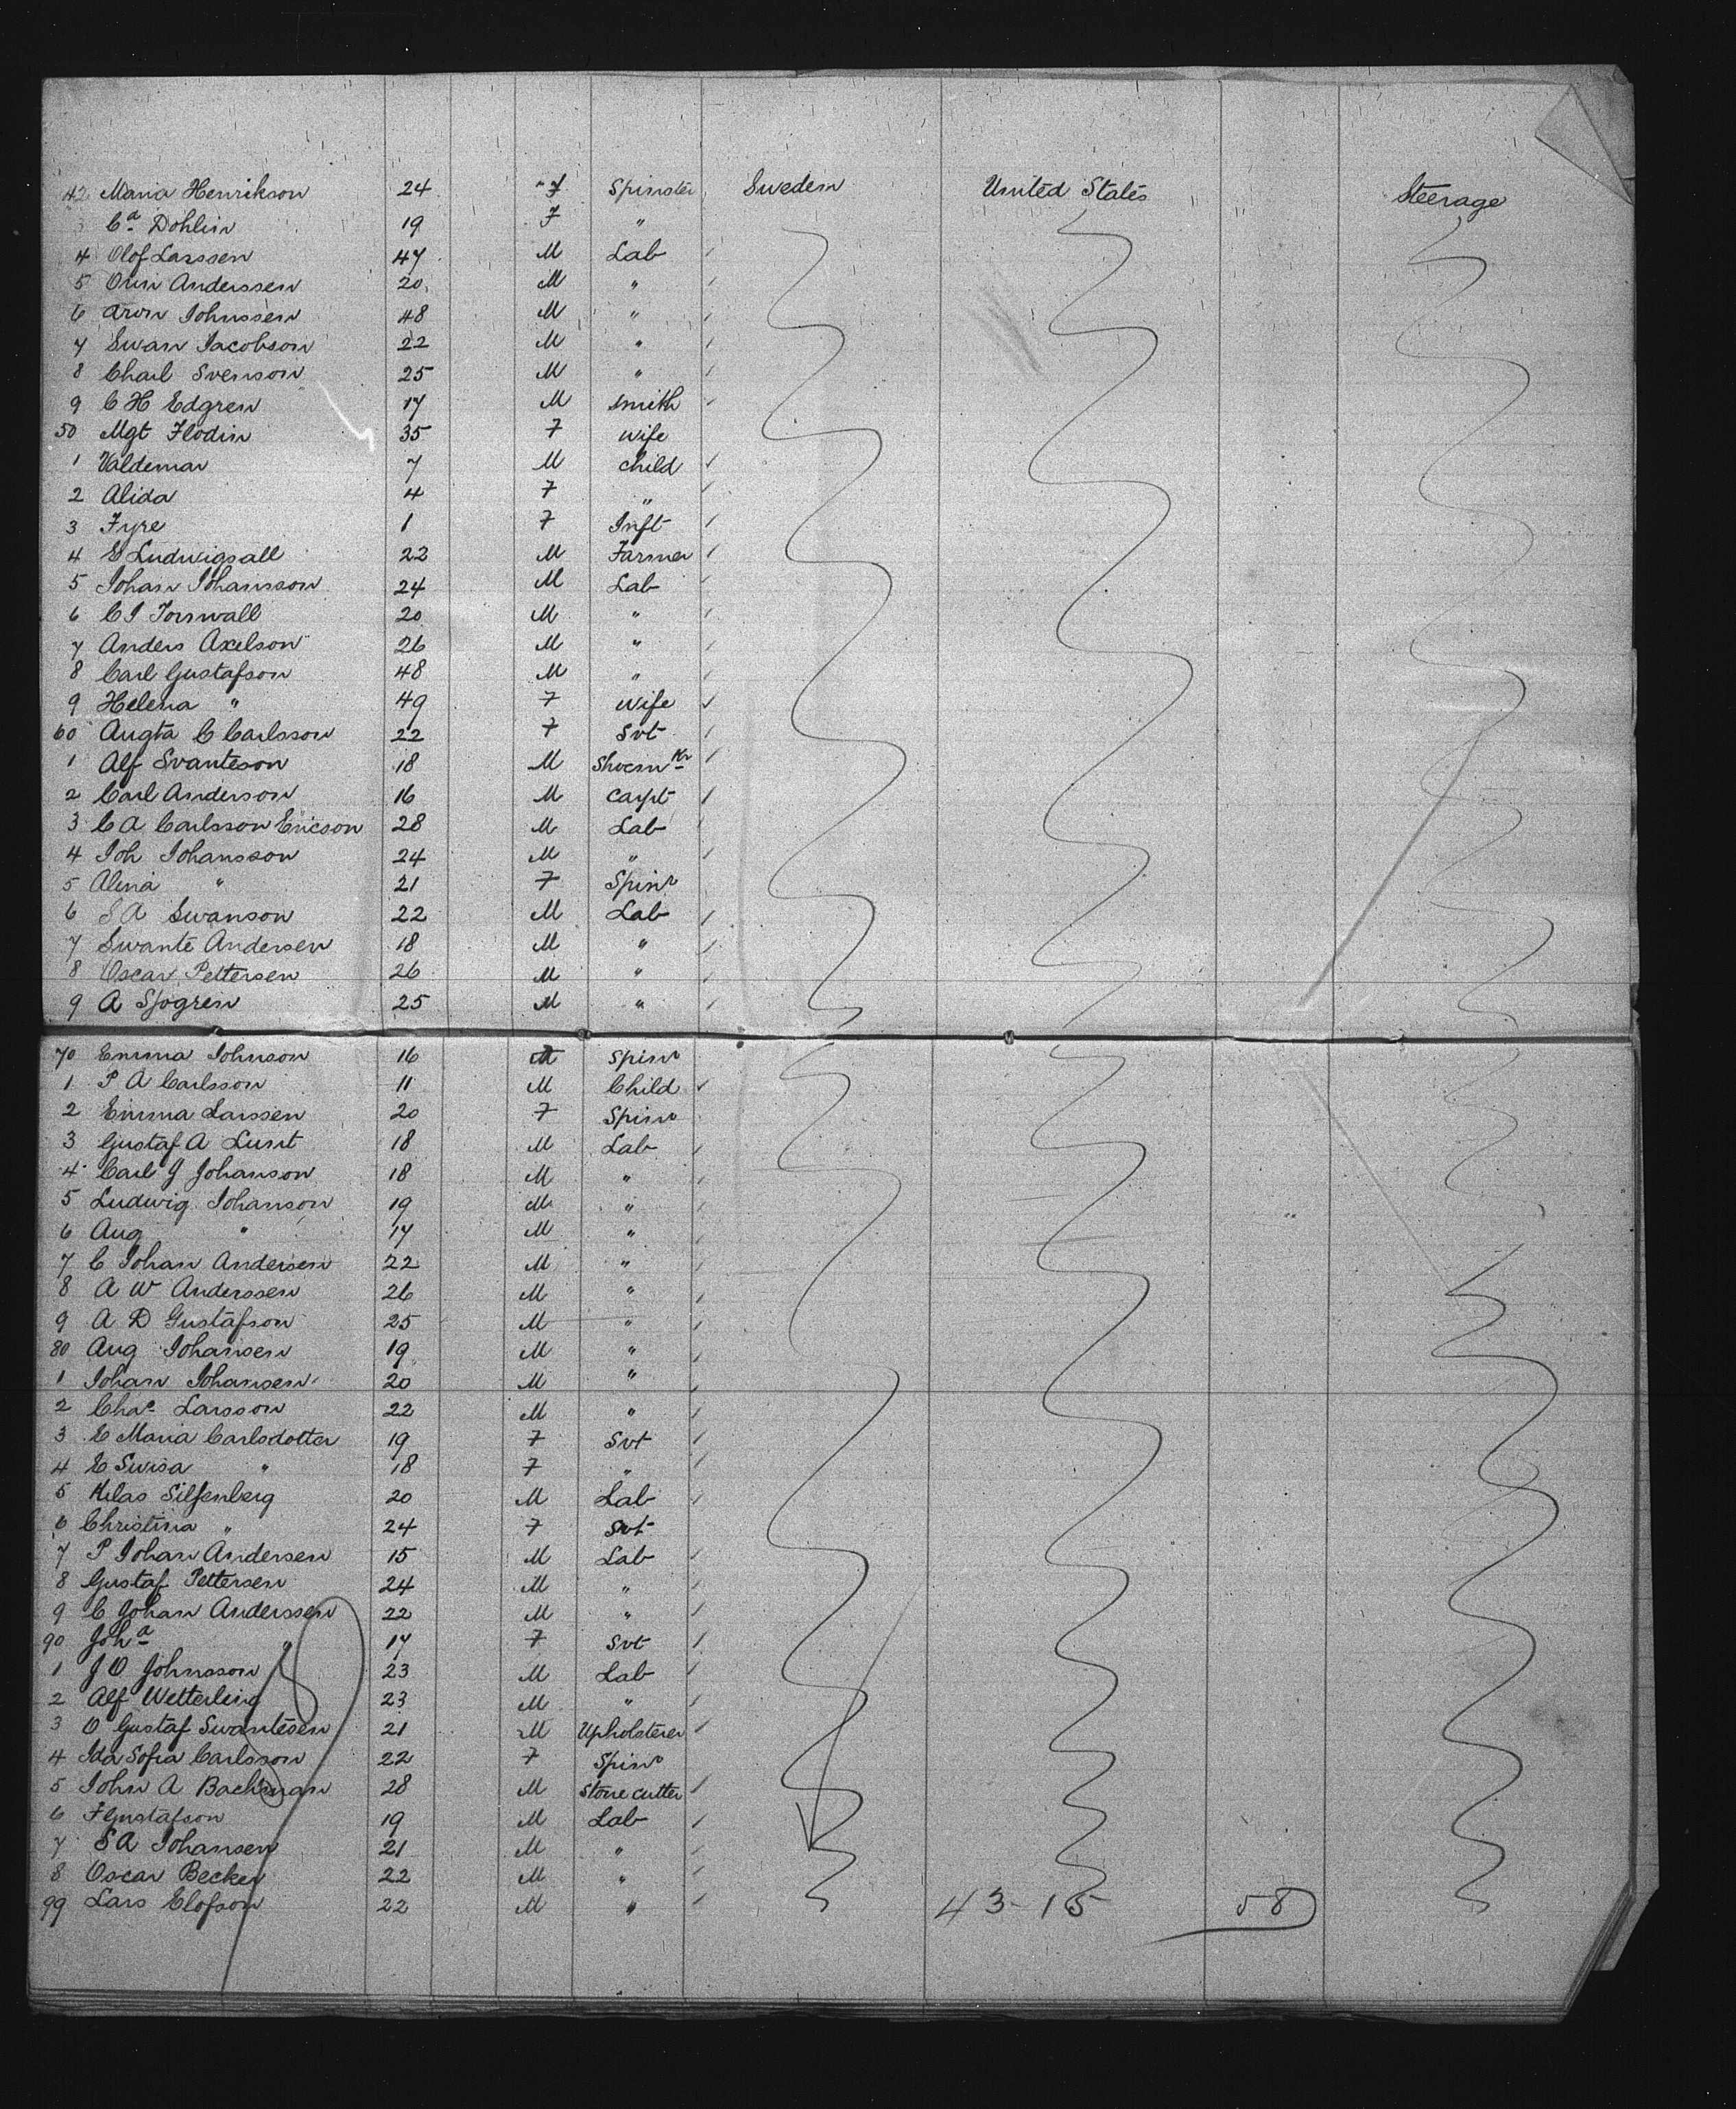 42 Maria Henrikson 24 F Spinster Sweden United States Steerage
3 Ca Dohlin 19 F "
4 Olof Larssen 47 M Lab
5 Orin Anderssen 20 M "
6 Arvn Johnssen 48 M "
7 Swan Jacobson 22 M "
8 Charl Svenson 25 M "
9 C H Edgren 17 M Smith
50 Mgt Flodin 35 F Wife
1 Valdemar 7 M Child
2 Alida 4 F "
3 Fyre 1 F Inft
4 E Ludwigsall 22 M Farmer
5 Johan Johansson 24 M Lab
6 C J Torswall 20 M "
7 Anders Axelson 26 M "
8 Carl Gustafson 48 M "
9 Helena " 49 F Wife
60 Augta C Carlsson 22 F Svt
1 Alf Svanteson 18 M Shoemkr
2 Carl Anderson 16 M Carpt
3 C A Carlsson Ericson 28 M Lab
4 Joh Johansson 24 M "
5 Alina " 21 F Spinr
6 S A Swanson 22 M Lab
7 Swante Andersen 18 M "
8 Oscar Pettersen 26 M "
9 A Sjogren 25 M "
70 Emma Johnson 16 Spinr
1 P A Carlsson 11 M Child
2 Emma Larssen 20 F Spinr
3 Gustaf A Lunt 18 M Lab
4 Carl G Johanson 18 M "
5 Ludwig Johanson 19 M "
6 Aug " 17 M "
7 C Johan Andersen 22 M "
8 A W Anderssen 26 M "
9 A D Gustafson 25 M "
80 Aug Johansen 19 M "
1 Johan Johansen 20 M "
2 Chas Larsson 22 M "
3 E Maria Carlsdotter 19 F Svt
4 E Swisa " 18 F "
5 Klas Silfenberg 20 M Lab
6 Christina " 24 F Svt
7 P Johan Andersen 15 M Lab
8 Gustaf Pettersen 24 M "
9 C Johan Anderssen 22 M "
90 Joha " 17 F Svt
1 J O Johnsson 23 M Lab
2 Alf Wetterling 23 M "
3 O Gustaf Swantesen 21 M Upholsterer
4 Ida Sofia Carlsson 22 F Spinr
5 John A Backman 28 M Stone cutter
6 F Gustafson 19 M Lab
7 S A Johansen 21 M "
8 Oscar Becker 22 M "
99 Lars Elofson 22 M " 43-15 58